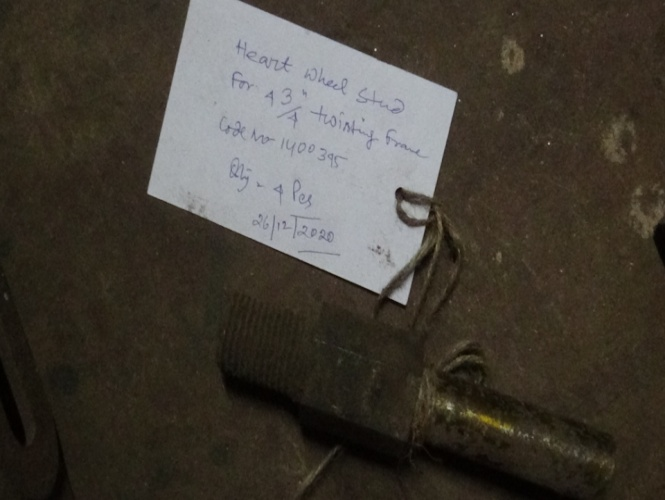 Heart wheel Stud
for 4 3/4" twisting frame
Code No - 1400395
Qty - 4 Pcs
26/12/2020